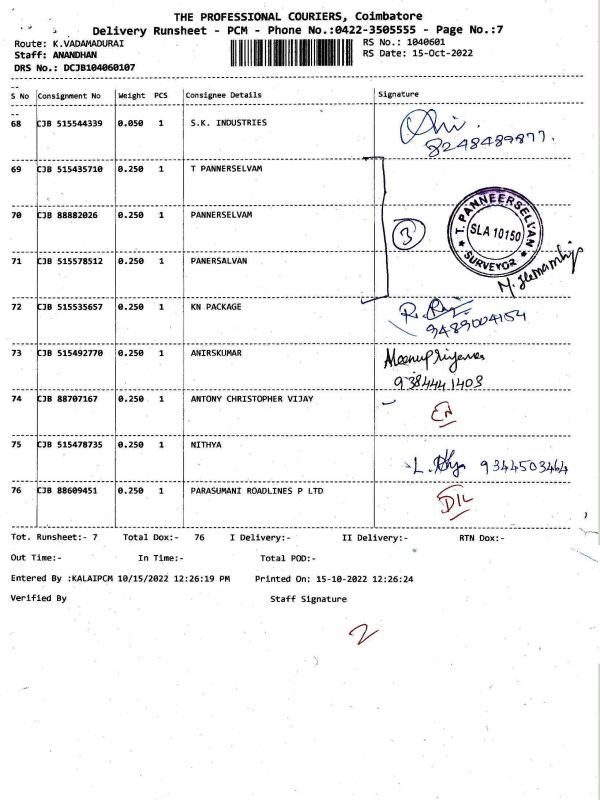 THE PROFESSIONAL COURIERS, Coimbatore
Delivery Runsheet - PCM - Phone No.:0422-3505555 - Page No.:7
Route: K.VADAMADURAI RS No.: 1040601
Staff: ANANDHAN RS Date: 15-Oct-2022
DRS No.: DCJB104060107
S No Consignment No Weight PCS Consignee Details Signature
68 CJB 515544339 0.050 1 S.K. INDUSTRIES
8248489877.
69 CJB 515435710 0.250 1 T PANNERSELVAM
70 CJB 88882026 0.250 1 PANNERSELVAM 3 T. PANNEERSELVAN SLA 10150 SURVEYOR
71 CJB 515578512 0.250 1 PANERSALVAN
72 CJB 515535657 0.250 1 KN PACKAGE
9489004154
73 CJB 515492770 0.250 1 ANIRSKUMAR
9384441403
74 CJB 88707167 0.250 1 ANTONY CHRISTOPHER VIJAY
75 CJB 515478735 0.250 1 NITHYA
9344503464
76 CJB 88609451 0.250 1 PARASUMANI ROADLINES P LTD
Tot. Runsheet:- 7 Total Dox:- 76 I Delivery:- II Delivery:- RTN Dox:-
Out Time:- In Time:- Total POD:-
Entered By :KALAIPCM 10/15/2022 12:26:19 PM Printed On: 15-10-2022 12:26:24
Verified By Staff Signature
2